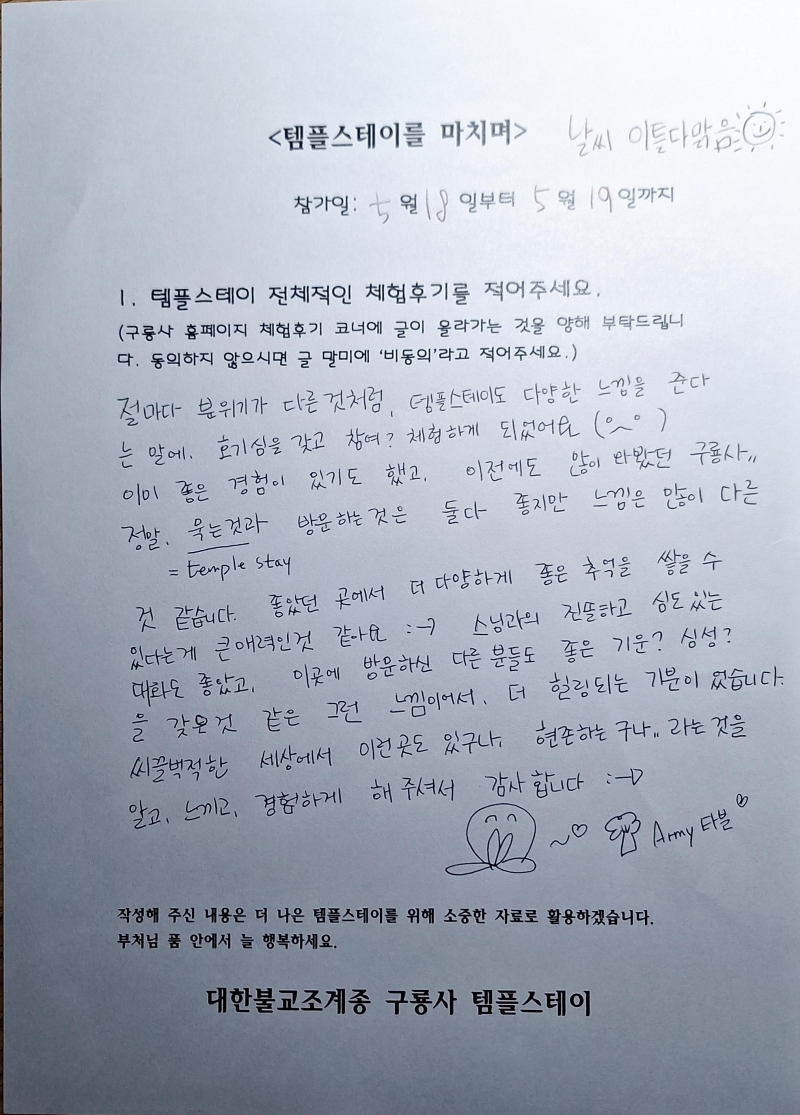 <템플스테이를 마치며> 날씨 이틀다맑음
참가일: 5월 18일부터 5월 19일까지
1. 템플스테이 전체적인 체험후기를 적어주세요.
(구룡사 홈페이지 체험후기 코너에 글이 올라가는 것을 양해 부탁드립니
다. 동의하지 않으시면 글 말미에 '비동의'라고 적어주세요.)
절마다 분위기가 다른것처럼, 템플스테이도 다양한 느낌을 준다
는 말에. 호기심을 갖고 참여? 체험하게 되었어요
이미 좋은 경험이 있기도 했고. 이전에도 많이 와봤던 구룡사,,
정말. 묵는것과 방문하는것은 둘다 좋지만 느낌은 많이 다른
= temple stay
것 같습니다. 좋았던 곳에서 더 다양하게 좋은 추억을 쌓을 수
있다는게 큰매력인것 같아요 :-> 스님과의 진솔하고 심도 있는
대화도 좋았고, 이곳에 방문하신 다른 분들도 좋은 기운? 심성?
을 갖은것 같은 그런 느낌이어서. 더 힐링되는 기분이 었습니다.
씨끌벅적한 세상에서 이런곳도 있구나, 현존하는 구나,, 라는것을
알고, 느끼고, 경험하게 해 주셔서 감사 합니다 :->
~♡ Army 타블 ♡
작성해 주신 내용은 더 나은 템플스테이를 위해 소중한 자료로 활용하겠습니다.
부처님 품 안에서 늘 행복하세요.
대한불교조계종 구룡사 템플스테이